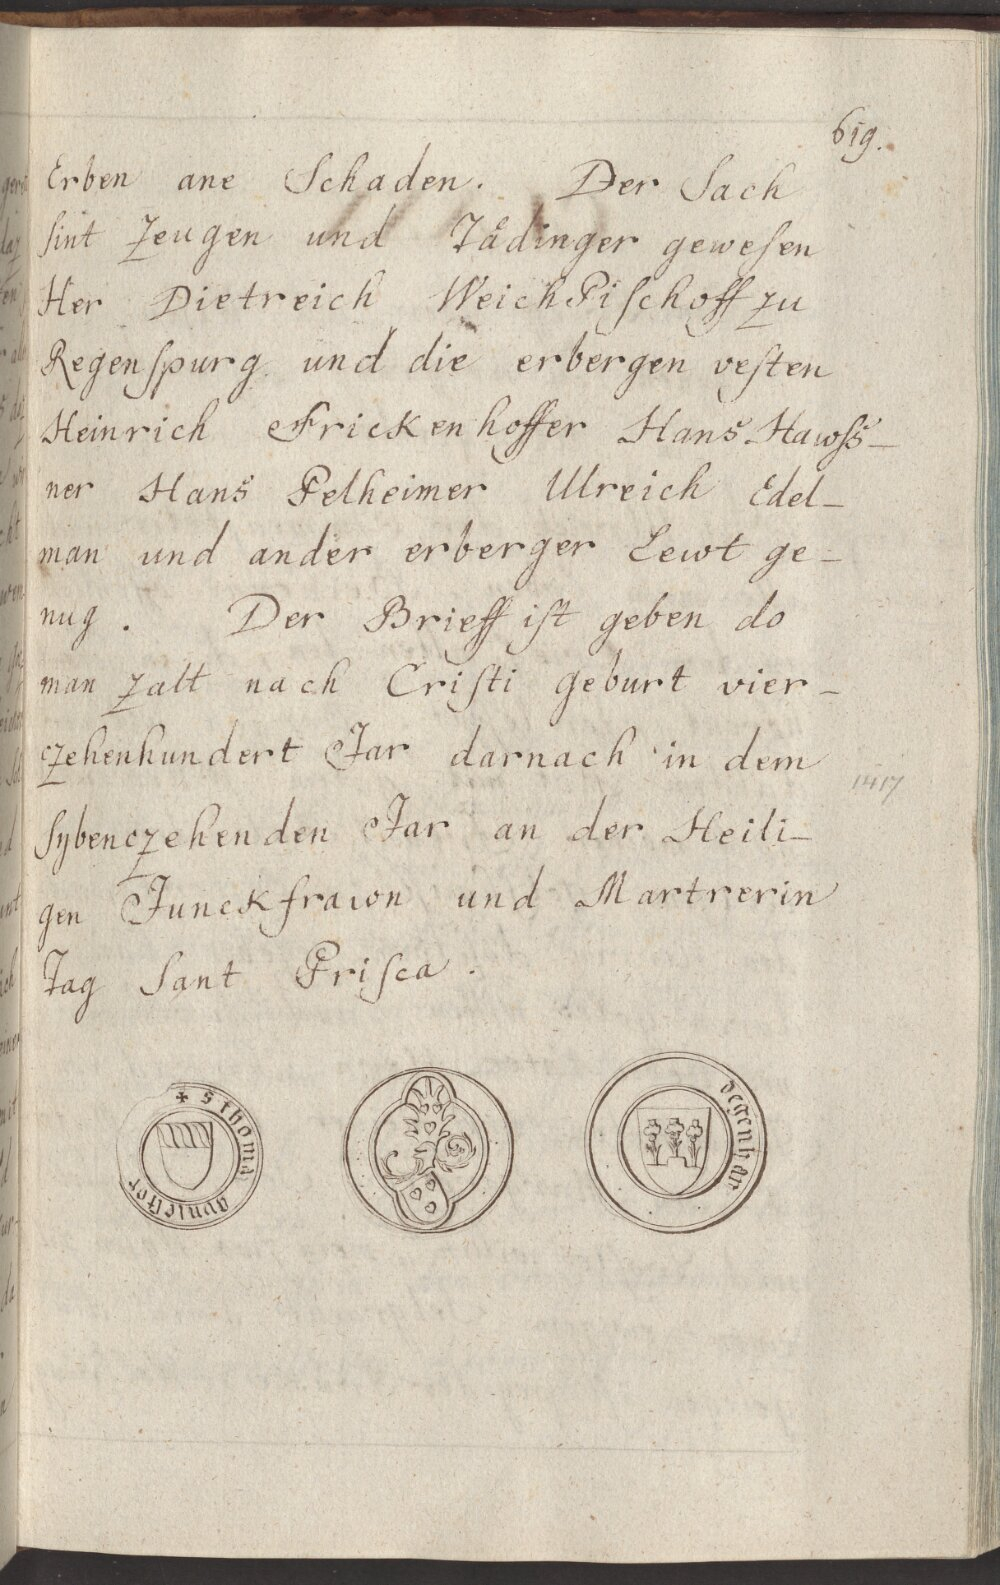 619.
Erben ane Schaden. Der Sach
sint Zeugen und Tädinger gewesen
Her Dietreich WeichPischoff zu
Regenspurg und die erbergen vesten
Heinrich Frickenhoffer Hans Hawss-
ner Hans Pelheimer Ulreich Edel-
man und ander erberger Lewt ge-
nug. Der Brieff ist geben do
man zalt nach Cristi geburt vier-
czehenhundert Jar darnach in dem
1417
sybenczehenden Jar an der Heili-
gen Junckfrawn und Martrerin
Tag Sant Prisca.
+ s thoma
degenhar